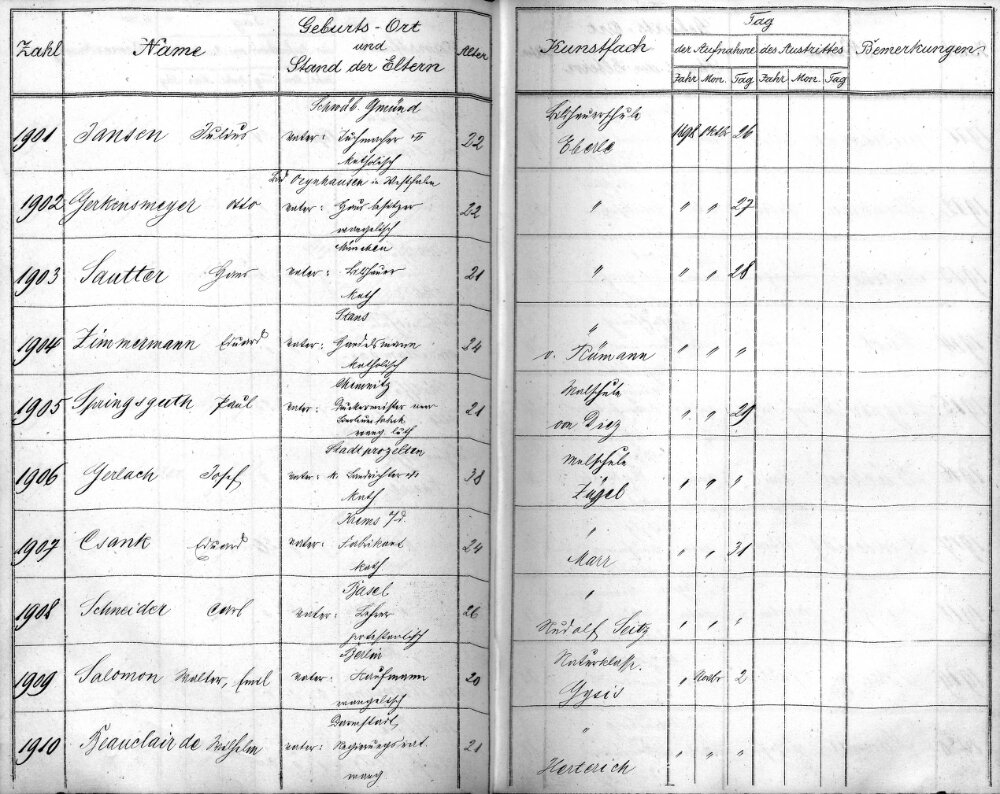 Zahl Name Geburts-Ort und Stand der Eltern Alter Kunstfach Tag der Aufnahme des Austrittes Bemerkungen
Jahr Mon. Tag Jahr Mon. Tag
Schwäb. Gmünd Bildhauerschule
1901 Jansen Julius Vater: 22 Eberle 1898 Oktb 26
Katholisch
Bad Oeynhausen in Westfalen
1902 Gerkensmeyer Otto Vater: Hausbesitzer 22 " " " 27
evangelisch
München
1903 Sautter Hans Vater: Bildhauer 21 " " " 28
Kath
Stans "
1904 Zimmermann Eduard Vater: Handelsmann 24 v. Rümann " " "
Katholisch
Chemnitz Malschule
1905 Springsguth Paul Vater: 21 von Diez " " 29
evang. luth
Stadtprozelten Malschule
1906 Gerlach Josef Vater: k. Landrichter 38 Zügel " " "
Kath
Krems a/d. "
1907 Csank Eduard Vater: Fabrikant 24 Marr " " 31
Kath
Basel "
1908 Schneider Carl Vater: Lehrer 26 Rudolf Seitz " " "
protestantisch
Berlin Naturklasse.
1909 Salomon Walter, Emil Vater: Kaufmann 20 Gysis " Novbr 2
evangelisch
Darmstadt, "
1910 Beauclair de Wilhelm Vater: Regierungsrat. 21 Herterich " " "
evang